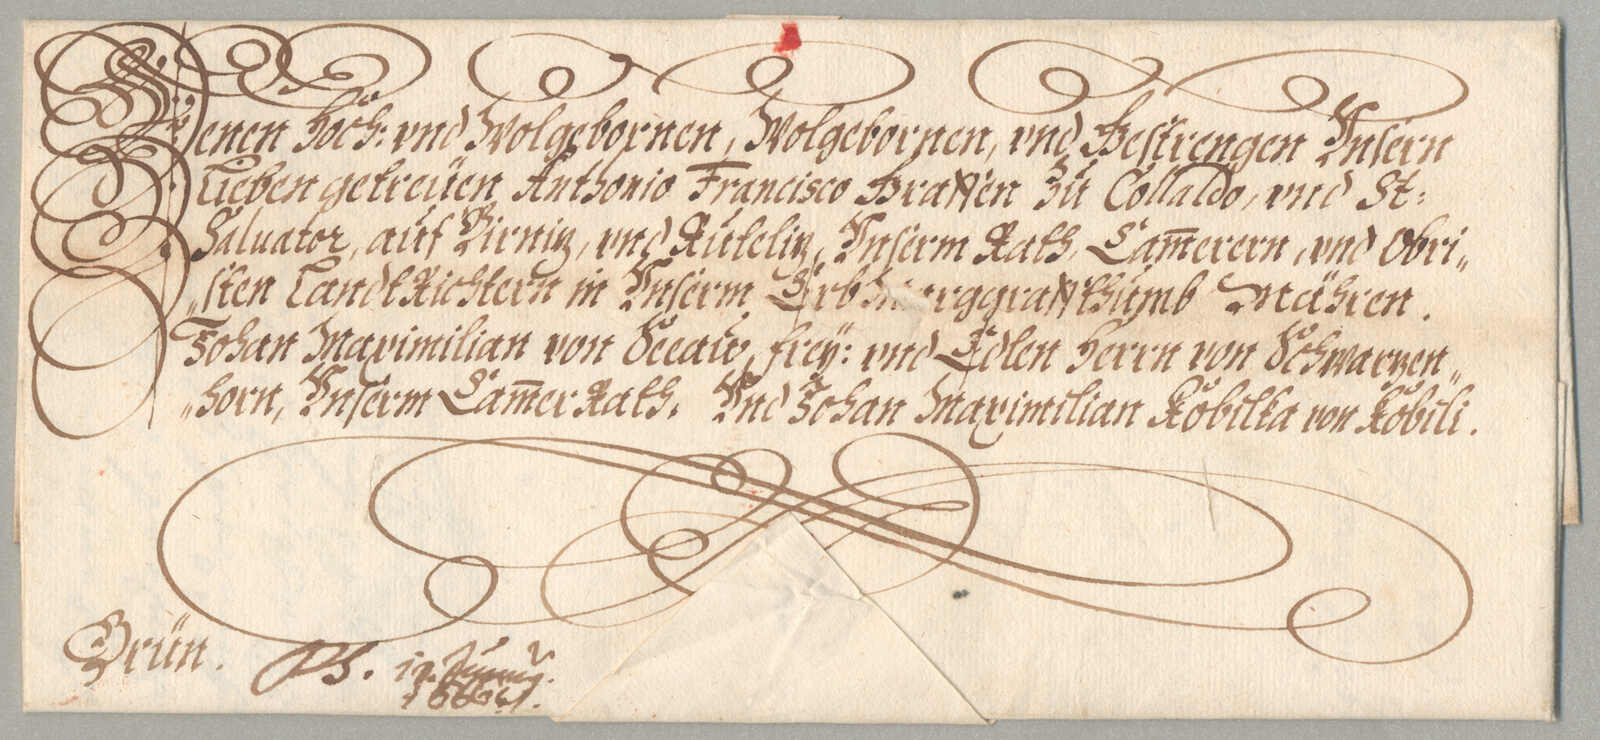 Denen Hoch: vnd Wolgebornen, Wolgebornen, vnd Gestrengen Vnsern
Lieben getreüen Anthonio Francisco Graffen Zú Collaldo, vnd St:
Saluator, auf Pirnitz, vnd Rúteliz, Vnserm Rath, Cam̄erern, vnd Obri„
„sten LandtRichtern in Vnserm Erb Marggraffthúmb Mähren.
Johan Maximilian von Seeaú, frey: vnd Edlen Herrn von Schwarzen„
„horn, Vnserm Cam̄er Rath. Vnd Johan Maximilian Kobilka von Kobili.
Brün.
Ps. 12. Junij.